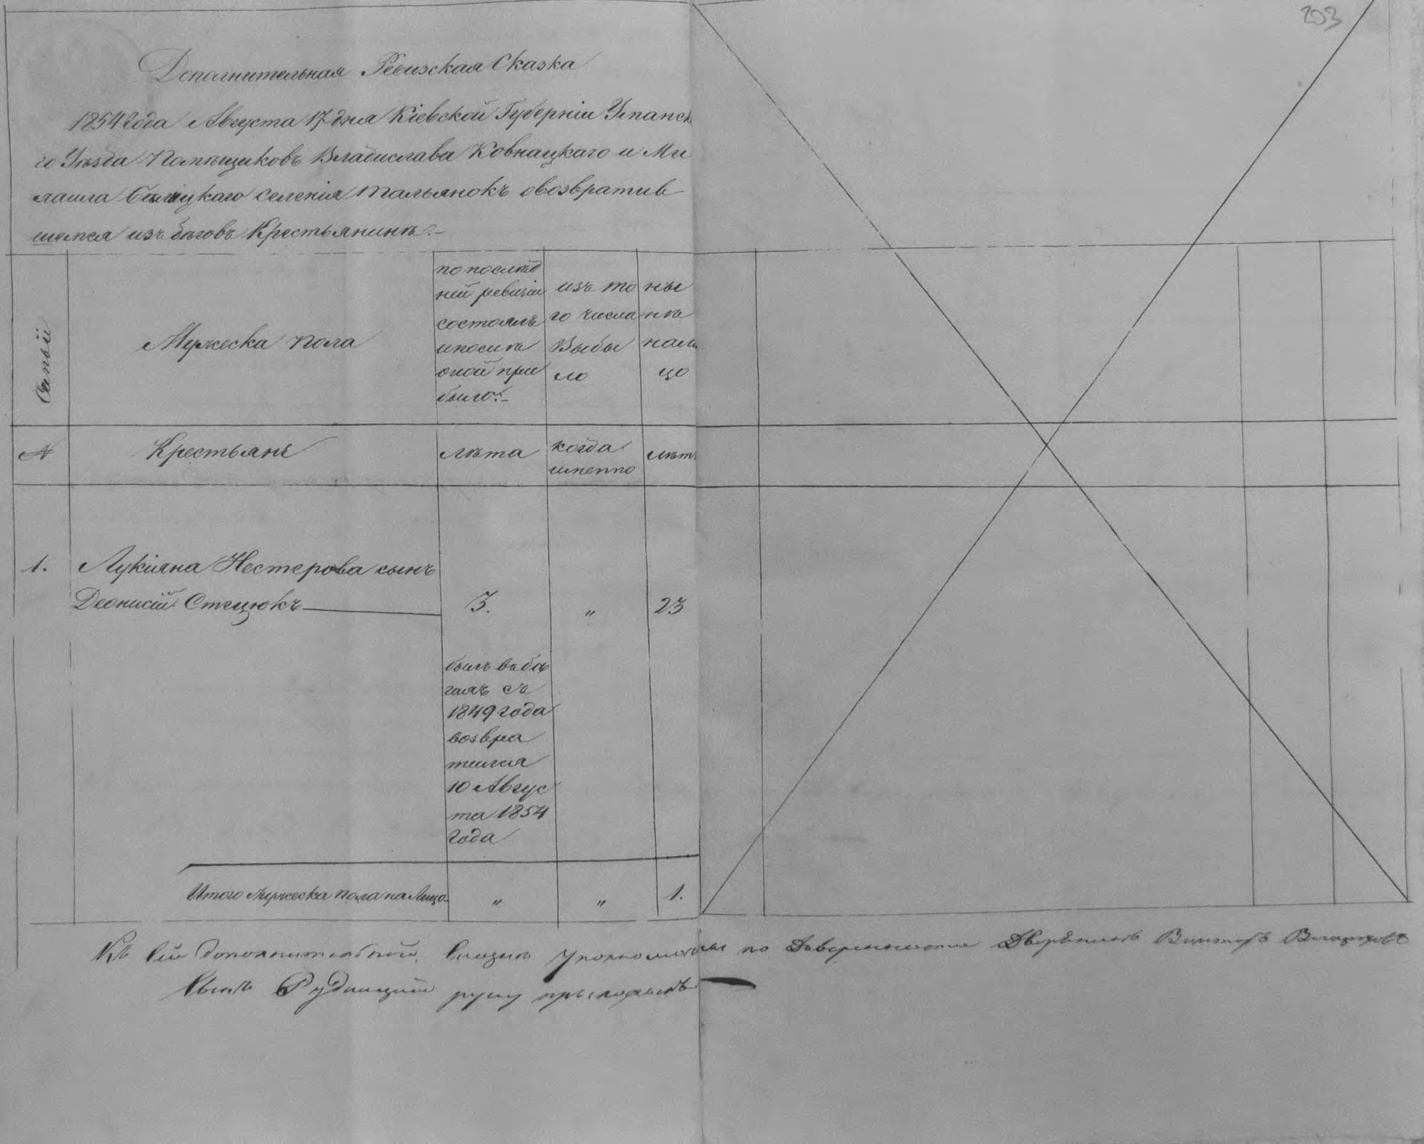 203
Дополнительная Ревизская Сказка
1854 года Августа 17 дня Кіевской Губерніи Уманск
го Уѣзда Помѣщиковъ Владислава Ковнацкаго и Ми
селенія Тальянокъ о возвратив
шемся изъ бѣговъ Крестьянинѣ.
Семьи
Мужеска пола
по послѣд
ней ревизіи
состоялъ
и после
оной при
было.
изъ то
го числа
выбы
ло
ны
нѣ
на ли
цо
№
Крестьянѣ
лѣта
когда
именно
лѣтъ
1.
Лукіяна Нестерова сынъ
Деонисій Стецюкъ
3.
„
23
былъ въ бѣ
гахъ съ
1849 года
возвра
тился
10 Авгус
та 1854
года
Итого мужеска пола на лицо
„
„
1.
Къ сей дополнительной сказке уполномоченный по доверенности Дворянинъ Викторъ
сынъ Рудницкий руку приложилъ